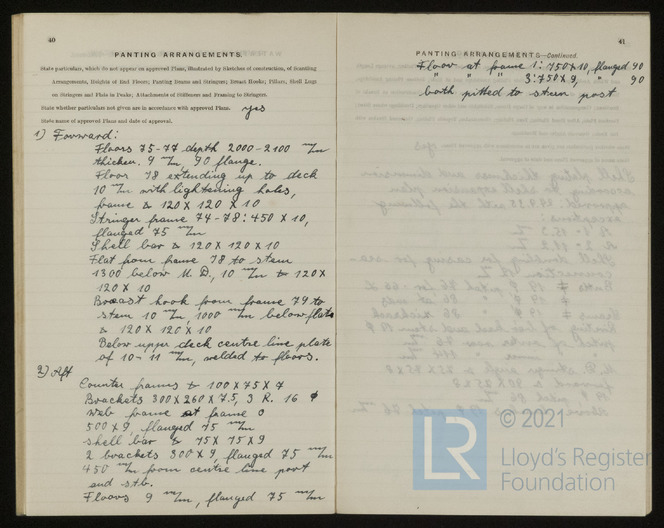 40
PANTING ARRANGEMENTS.
State particulars, which do not appear on approved Plans, illustrated by Sketches of construction, of Scantling
Arrangements, Heights of End Floors; Panting Beams and Stringers; Breast Hooks; Pillars, Shell Lugs
on Stringers and Flats in Peaks; Attachments of Stiffeners and Framing to Stringers.
State whether particulars not given are in accordance with approved Plans. yes
State name of approved Plans and date of approval.
1) Forward:
Floors 75-77 depth 2000-2100 m/m
thickn. 9 m/m, 90 flange.
Floor 78 extending up to deck
10 m/m with lightening holes,
frame 120 X 120 X 10
Stringer frame 74-78: 450 X 10,
flanged 75 m/m
Shell bar 120 X 120 X 10
Flat from frame 78 to stem
1300 below U. D., 10 m/m 120 X
120 X 10
Breast hook from frame 79 to
stem 10 m/m, 1000 m/m below flats
120 X 120 X 10
Below upper deck centre line plate
of 10-11 m/m, welded to floors.
2) Aft
Counter frames 100 X 75 X 7
Brackets 300 X 260 X 7.5, 3 R. 16 φ
Web frame at frame 0
500 X 9, flanged 75 m/m
shell bar 75 X 75 X 9
2 brackets 300 X 9, flanged 75 m/m
450 m/m from centre line port
and stb.
Floors 9 m/m, flanged 75 m/m
41
PANTING ARRANGEMENTS—Continued.
Floor at frame 1: 750 X 10, flanged 90
" " " 3: 750 X 9, " 90
both fitted to stern post
© 2021
LR
Lloyd's Register
Foundation